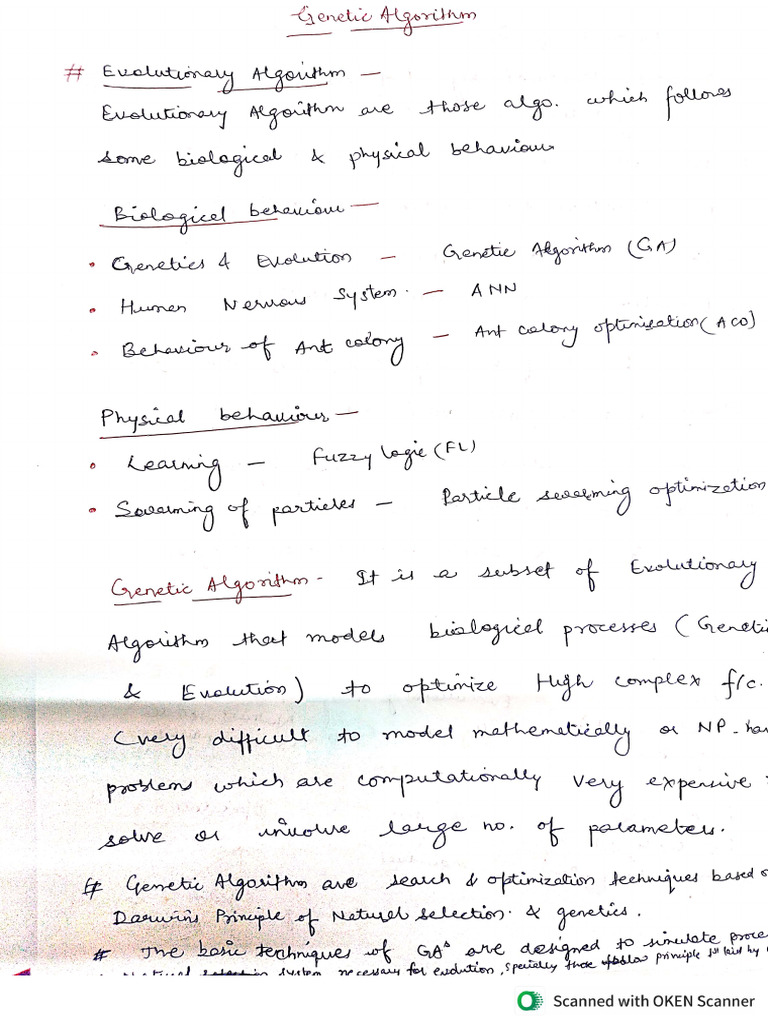 Genetic Algorithm
# Evolutionary Algorithm —
Evolutionary Algorithm are those algo. which follows
some biological & physical behaviour
Biological behaviour —
• Genetics & Evolution — Genetic Algorithm (GA)
• Human Nervous System. — ANN
• Behaviour of Ant colony — Ant colony optimisation (ACO)
Physical behaviour —
• Learning — Fuzzy logic (FL)
• Swarming of particles — Particle swarming optimization
Genetic Algorithm - It is a subset of Evolutionary
Algorithm that models biological processes (Geneti
& Evolution) to optimize High complex f/c.
(very difficult to model mathematically or NP-har
problems which are computationally very expensive
solve or involve large no. of parameters.
# Genetic Algorithm are search & optimization techniques based o
Darwin's Principle of Natural selection. & genetics.
# The basic techniques of GAs are designed to simulate proce
system necessary for evolution, specially those principle 1st laid by
Scanned with OKEN Scanner